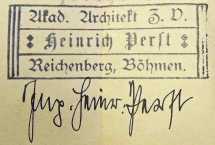 Akad. Architekt Z. V.
Heinrich Perst
Reichenberg, Böhmen.
Ing. Heinr. Perst